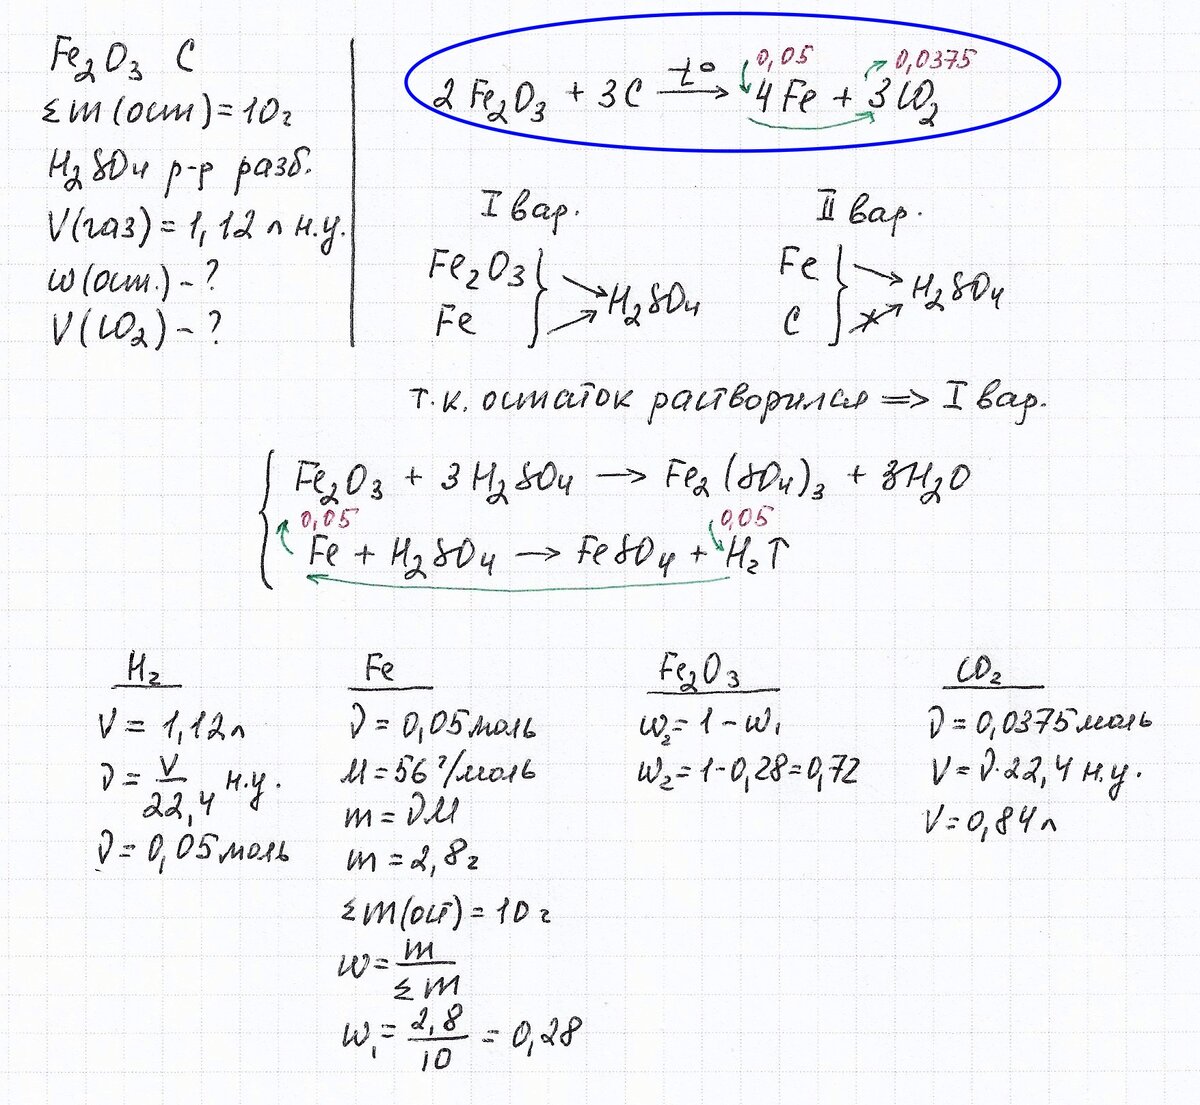 Fe₂O₃ C
Σm(ост)=10г
H₂SO₄ р-р разб.
V(газ)=1,12л н.у.
w(ост.)-?
V(CO₂)-?
0,05 0,0375
2Fe₂O₃ + 3C →t° 4Fe + 3CO₂
I вар. II вар.
Fe₂O₃ Fe
H₂SO₄ H₂SO₄
Fe C
т.к. остаток растворился => I вар.
Fe₂O₃ + 3H₂SO₄ → Fe₂(SO₄)₃ + 3H₂O
0,05 0,05
Fe + H₂SO₄ → FeSO₄ + H₂↑
H₂
V = 1,12л
ν = V/22,4 н.у.
ν = 0,05моль
Fe
ν = 0,05моль
M = 56г/моль
m = νM
m = 2,8г
Σm(ост) = 10г
w = m/Σm
w₁ = 2,8/10 = 0,28
Fe₂O₃
w₂ = 1 - w₁
w₂ = 1-0,28=0,72
CO₂
ν = 0,0375моль
V = ν·22,4 н.у.
V = 0,84л